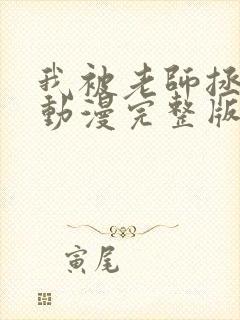 我被老師拯
動漫完整版
寅尾